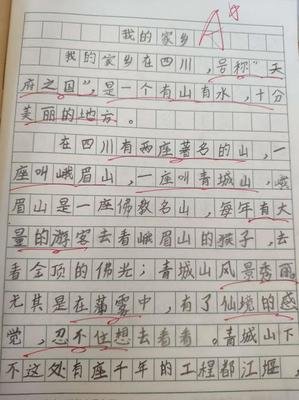 我的家乡
A+
我的家乡在四川，号称“天
府之国”，是一个有山有水，十分
美丽的地方。
在四川有两座著名的山，一
座叫峨眉山，一座叫青城山，峨
眉山是一座佛教名山，每年有大
量的游客去看峨眉山的猴子，去
看金顶的佛光；青城山风景秀丽
尤其是在薄雾中，有了仙境的感
觉，忍不住想去看看。青城山下
不这处有座千年的工程都江堰，